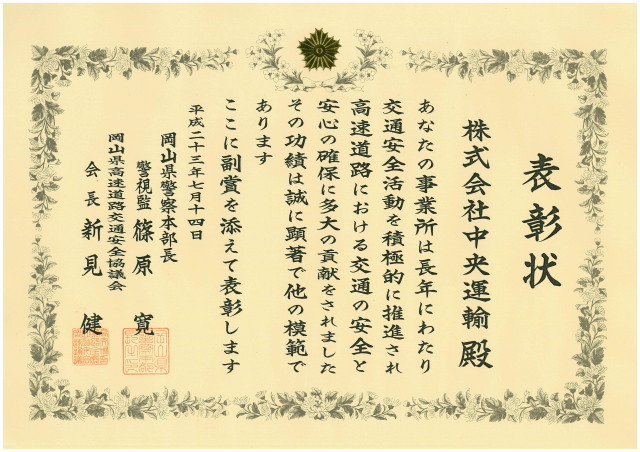 表彰状
株式会社中央運輸殿
あなたの事業所は長年にわたり
交通安全活動を積極的に推進され
高速道路における交通の安全と
安心の確保に多大の貢献をされました
その功績は誠に顕著で他の模範で
あります
ここに副賞を添えて表彰します
平成二十三年七月十四日
岡山県警察本部長
警視監 篠原 寛
岡山県高速道路交通安全協議会
会長 新見 健